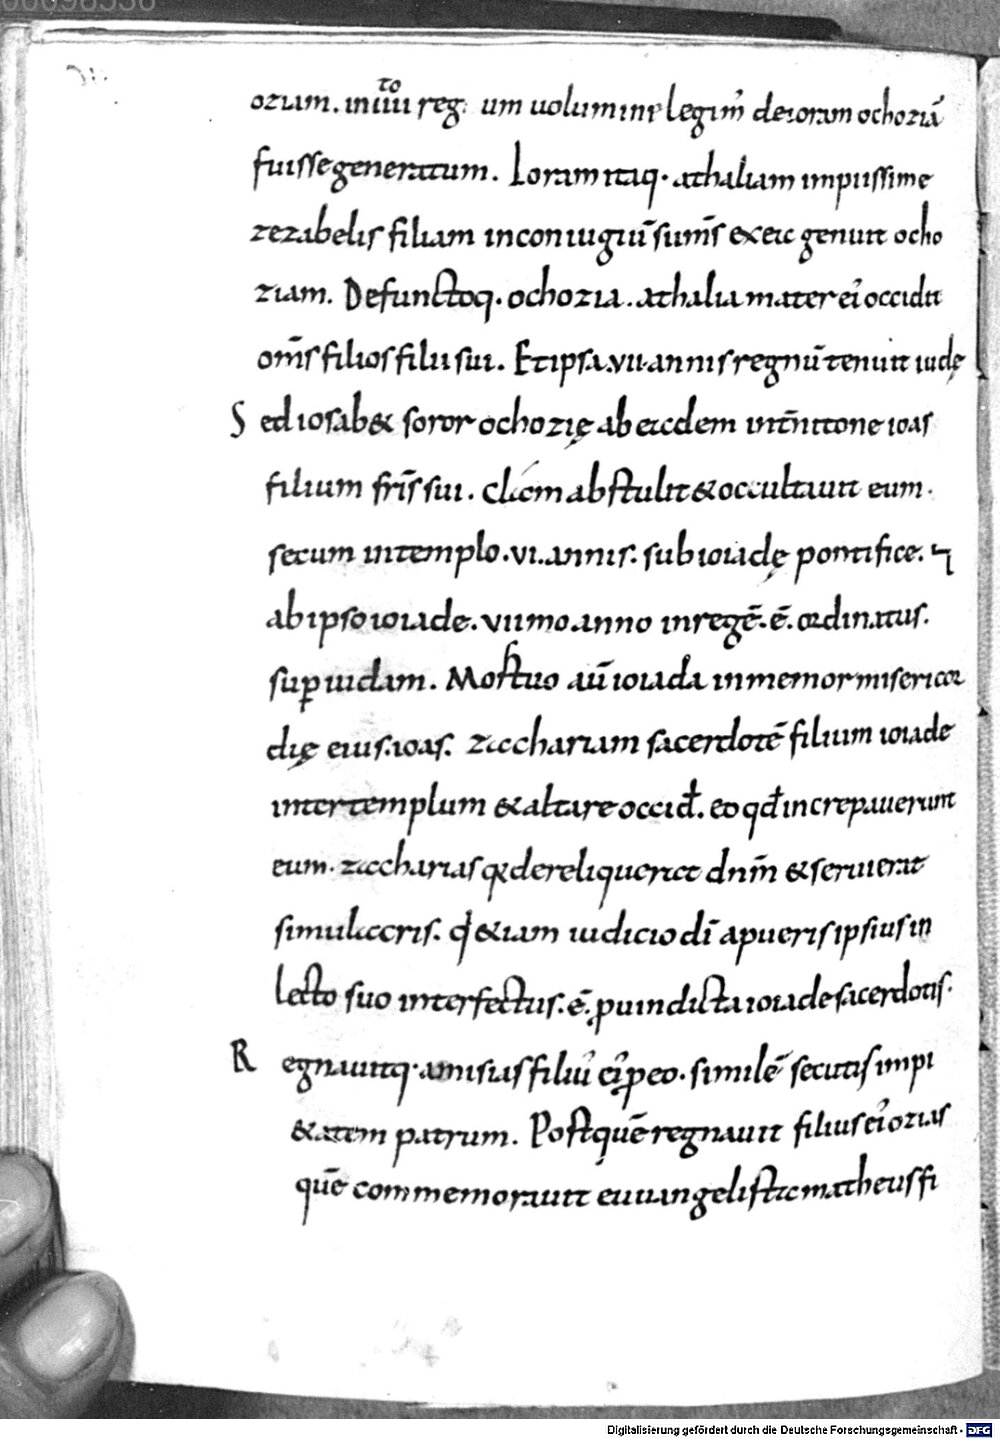 oziam. in iiii^to reg. um uolumine legim̄ de ioram ochoziā
fuisse generatum. Ioram itaq· athaliam impiissime
zezabelis filiam in coniugiū sum̄s ex eac genuit ocho
ziam. Defunctoq· ochozia. athalia mater ei' occidit
om̄s filios filii sui. Et ipsa .vii. annis regnū tenuit iudę
Sed iosab& soror ochozię ab eadem int̄nitione ioas
filium fr̄is sui. clam abstulit & occultauit eum.
secum in templo .vi. annis. sub ioiadę pontifice. ⁊
ab ipso ioiade. viimo anno in regē .ē. ordinatus.
sup̱ iudam. Mortuo aū ioiada inmemor misericor
dię eius ioas. zacchariam sacerdotē filium ioiade
inter templum & altare occid̄. eo qđ increpauerunt
eum. zaccharias qđ dereliquerat dnm̄ & seruierat
simulacris. qđ &iam iudicio dī a pueris ipsius in
lecto suo interfectus .ē. p uindicta ioiade sacerdotis.
Regnauitq· amisias filiu' ei' p eo. similē secutus impi
&atem patrum. Post quē regnauit filius ei' ozias
quē commemorauit euuangelista matheus fi
Digitalisierung gefördert durch die Deutsche Forschungsgemeinschaft - DFG